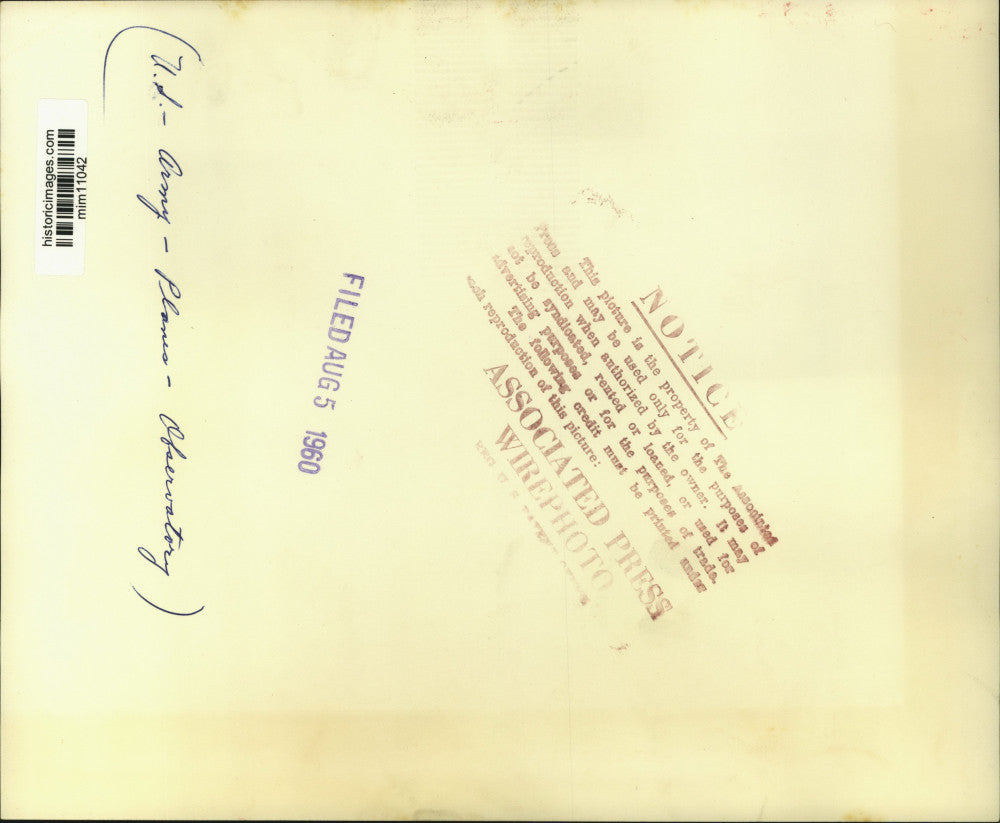 (U.S. - Army - Planes - Observatory)
historicimages.com
mim11042
FILED AUG 5 1960
NOTICE
This picture is the property of The Associated
Press and may be used only for the purposes of
reproduction when authorized by the owner. It may
not be syndicated, rented or loaned, or used for
advertising purposes or for the purposes of trade.
The following credit must be printed under
each reproduction of this picture:
ASSOCIATED PRESS
WIREPHOTO